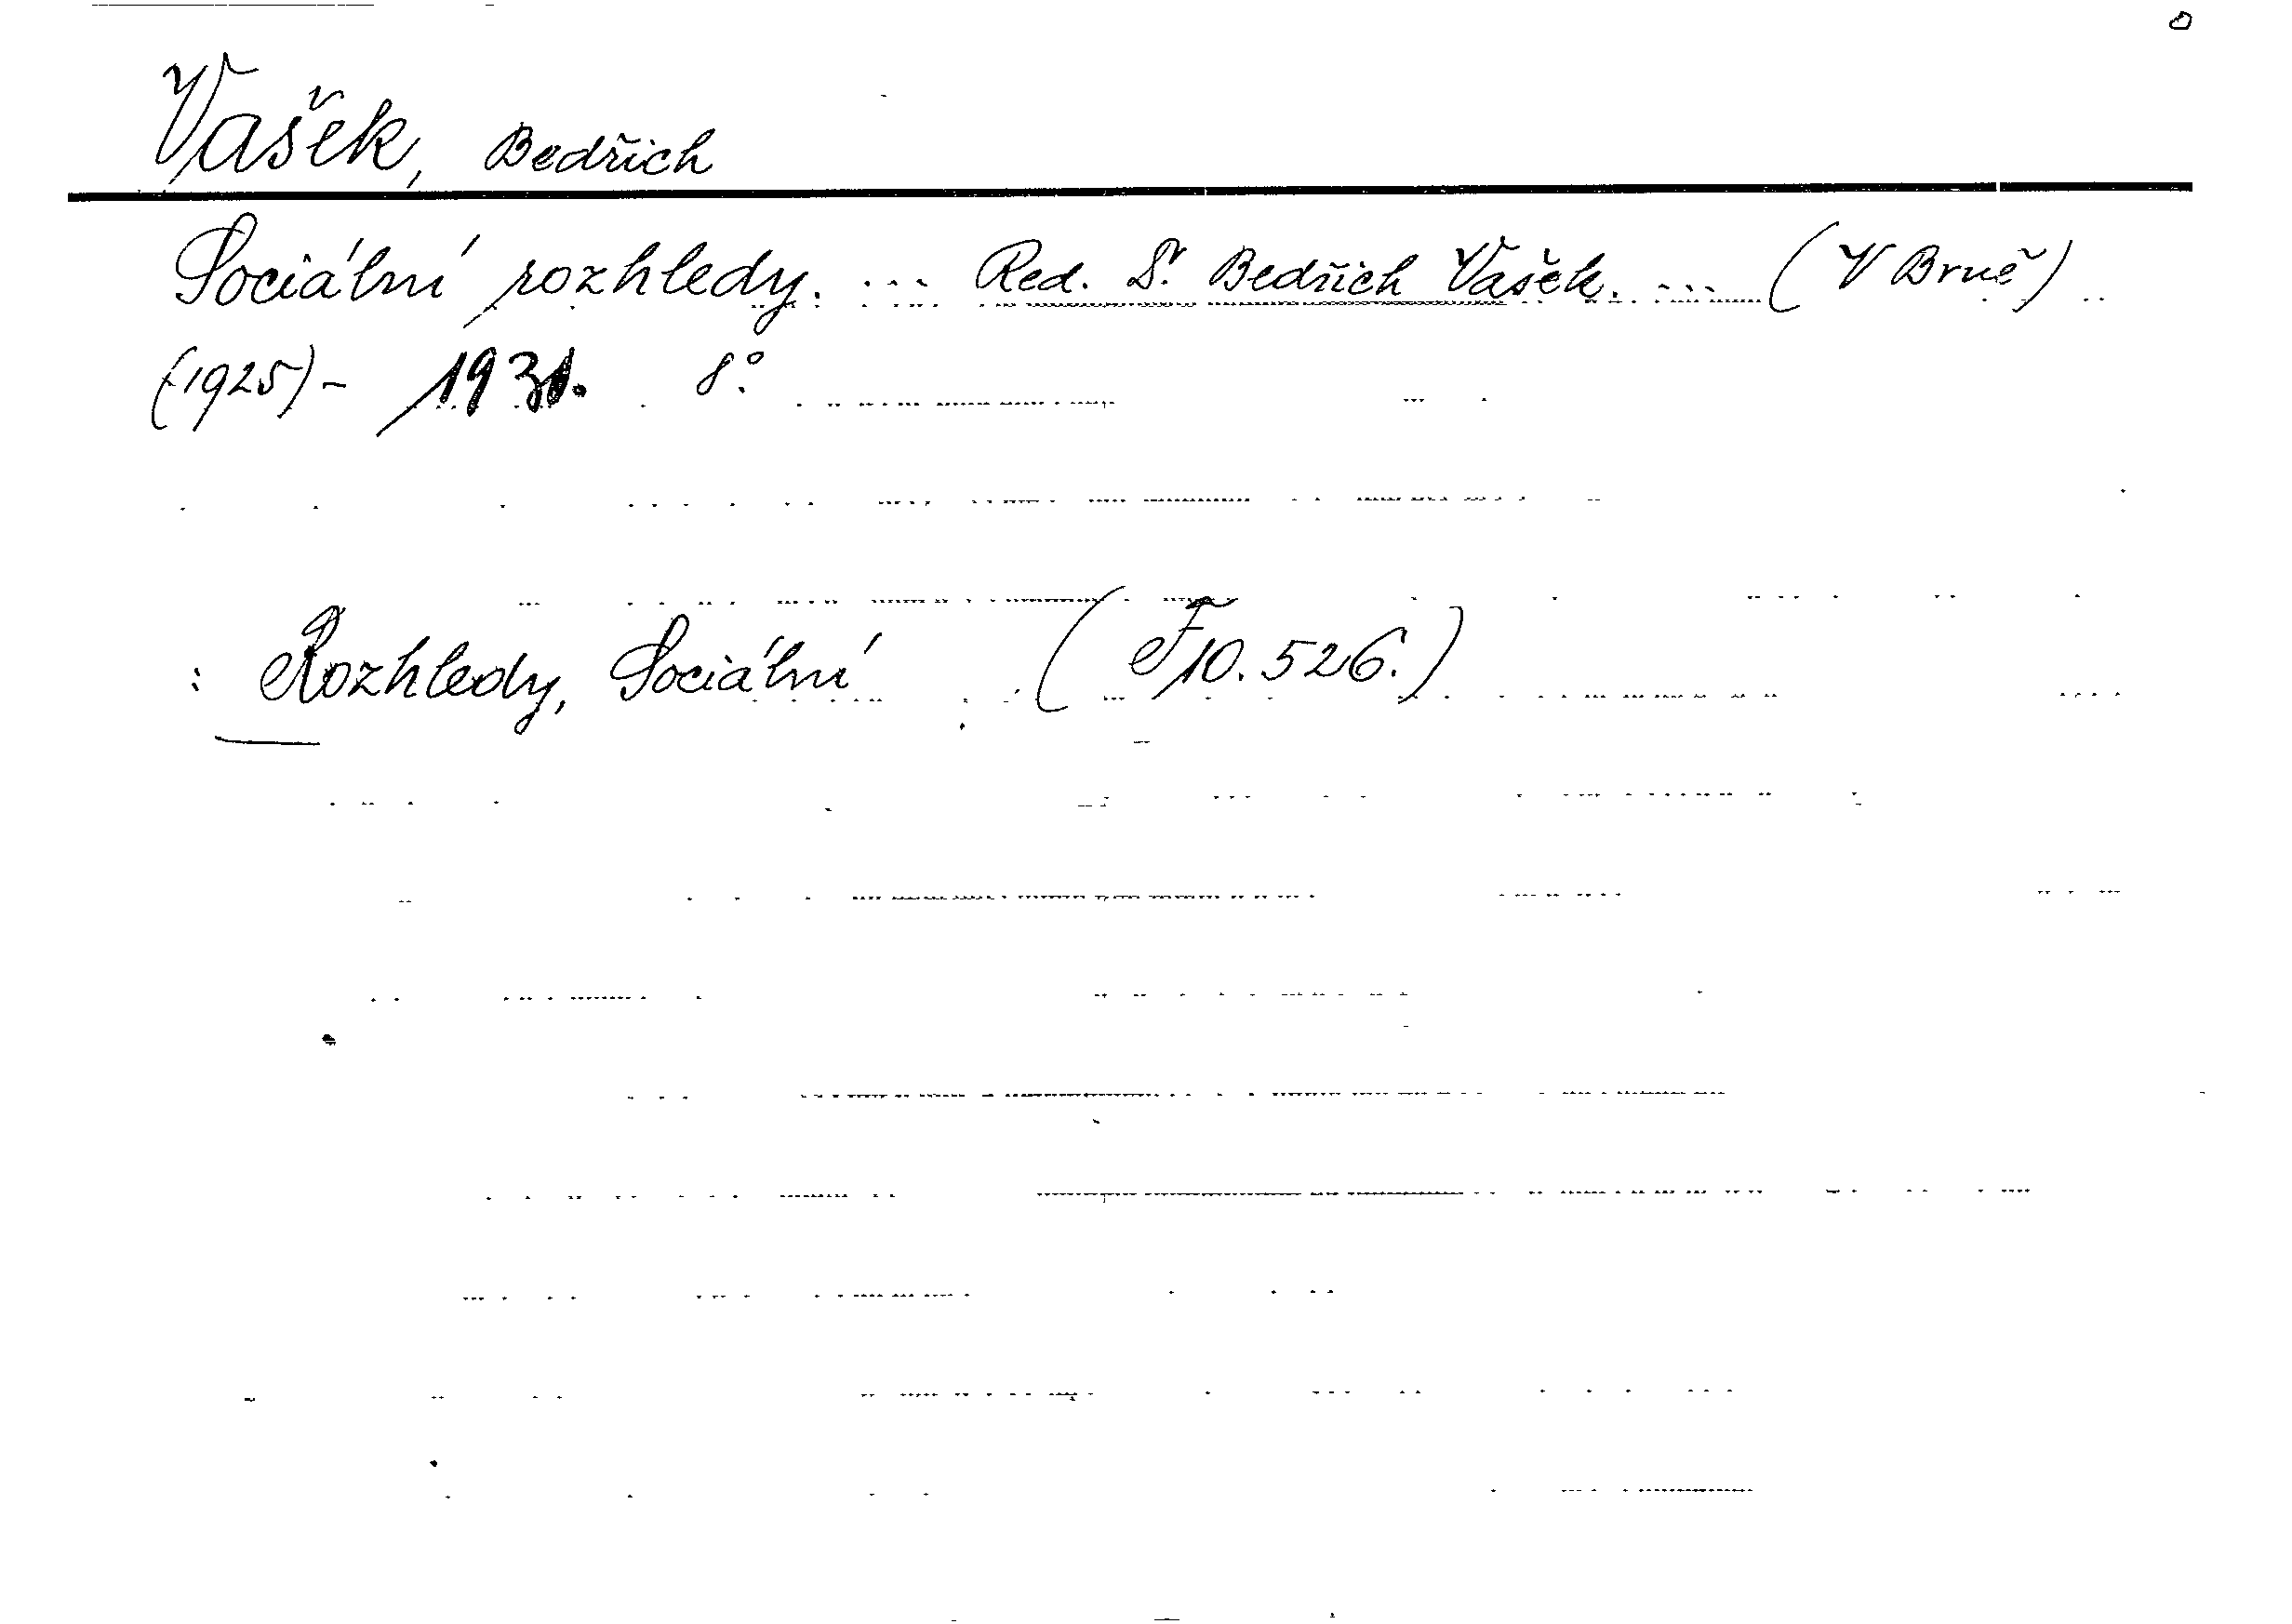 Vašek, Bedřich
Sociální rozhledy. ... Red. Dr. Bedřich Vašek. ... (V Brně)
(1925)- 1931. 8°.
: Rozhledy, Sociální (F 10.526.)